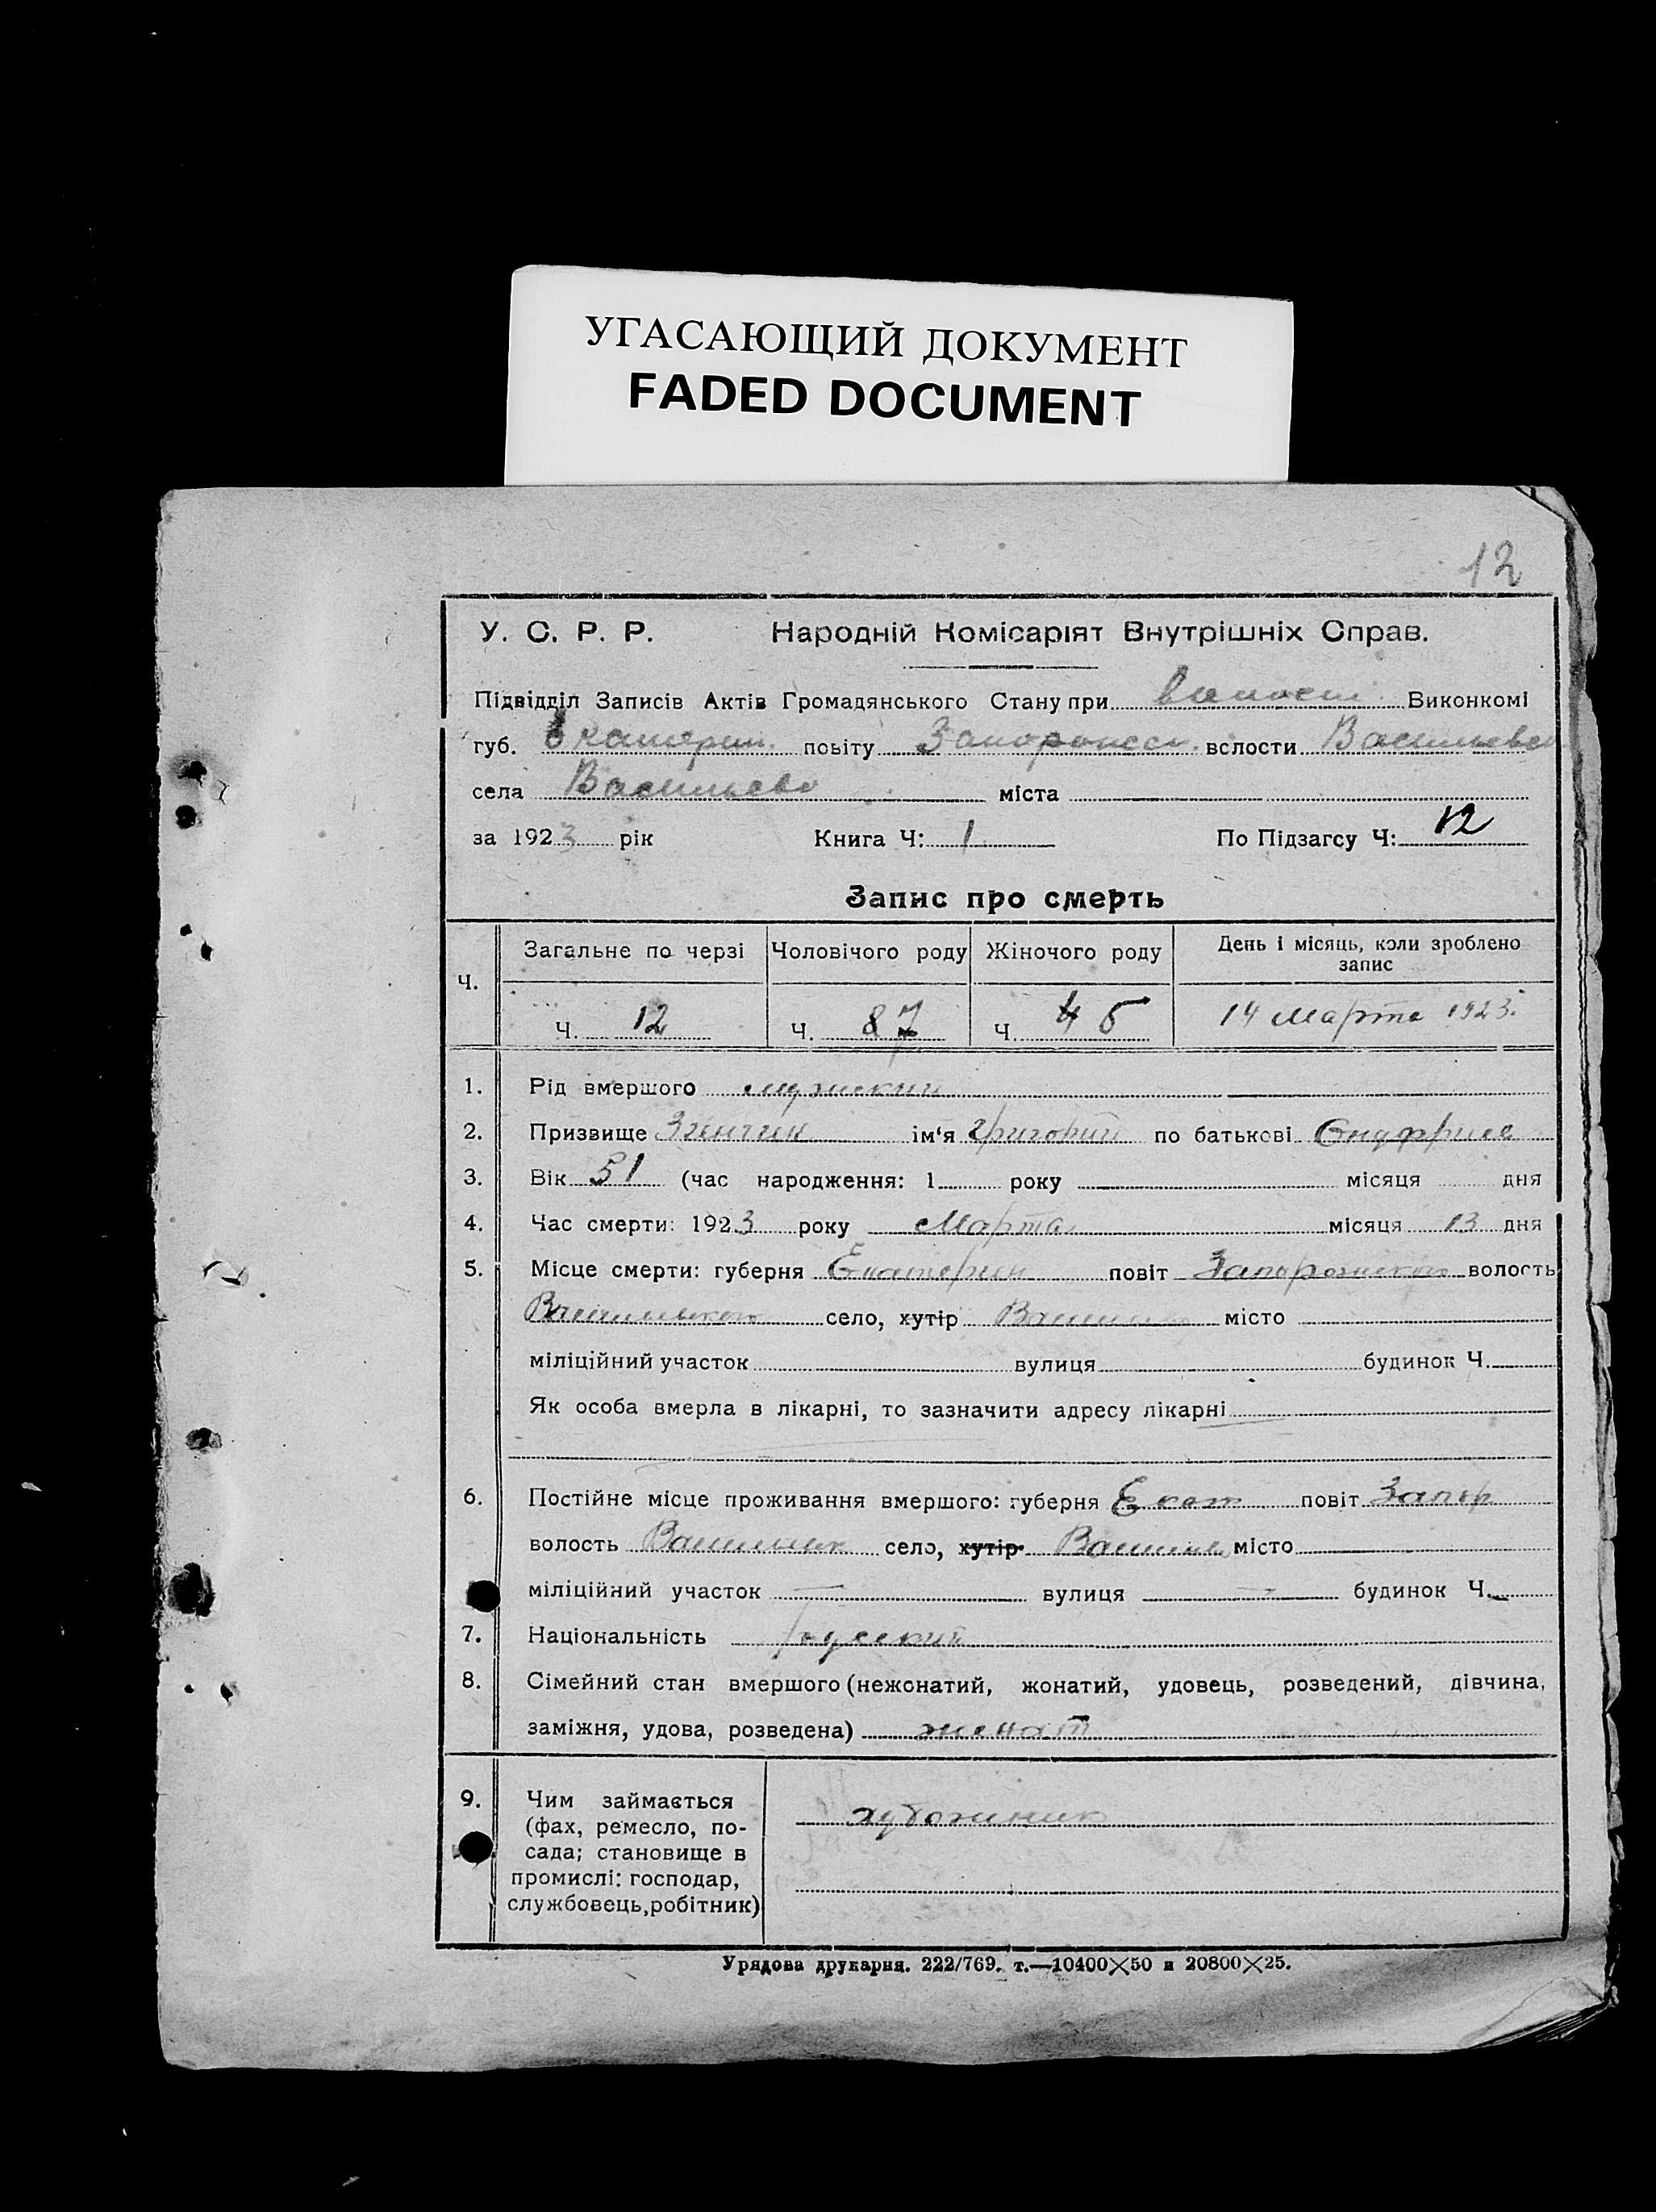 УГАСАЮЩИЙ ДОКУМЕНТ
FADED DOCUMENT
12
У. С. Р. Р. Народній Комісаріят Внутрішніх Справ.
Підвідділ Записів Актів Громадянського Стану при Виконкомі
губ. Екатерин. повіту Запорожск. волости Васильевс
села Васильево міста
за 1923 рік Книга Ч: 1 По Підзагсу Ч: 12
Запис про смерть
Ч. Загальне по черзі Чоловічого роду Жіночого роду День і місяць, коли зроблено запис
Ч. 12 Ч. 8 7 Ч. 4 5 14 Марта 1923.
1. Рід вмершого мужский
2. Призвище Зинчин ім'я Григорий по батькові Онуфрие
3. Вік 51 (час народження: 1 року місяця дня
4. Час смерти: 1923 року Марта місяця 13 дня
5. Місце смерти: губерня Екатерин повіт Запорожской волость
село, хутір місто
міліційний участок вулиця будинок Ч.
Як особа вмерла в лікарні, то зазначити адресу лікарні
6. Постійне місце проживання вмершого: губерня Екат повіт Запор
волость село, хутір місто
міліційний участок — вулиця — будинок Ч.
7. Національність Русский
8. Сімейний стан вмершого (нежонатий, жонатий, удовець, розведений, дівчина,
заміжня, удова, розведена) женат
9. Чим займається художник
(фах, ремесло, по-
сада; становище в
промислі: господар,
службовець, робітник)
Урядова друкарня. 222/769. т.—10400×50 и 20800×25.